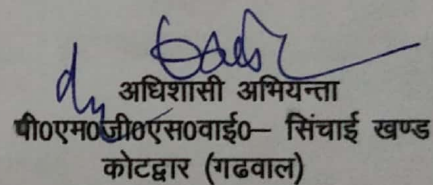 अधिशासी अभियन्ता
पी०एम०जी०एस०वाई०– सिंचाई खण्ड
कोटद्वार (गढवाल)